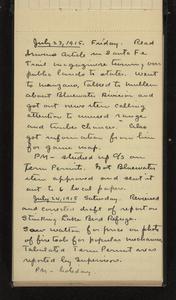 July 23, 1915. Friday. Read
Service article in Santa Fe
Trail magazine turning our
public lands to state. Went
to Manzano, talked to Mullen
about Bluewater Division and
got out news item calling
attention to unused range
and timber chances. Also
got information from him
for game map.
PM - studied up G/S on
Term Permit. Got Bluewater
item approved and sent it
out to 6 local paper.
July 24, 1915 Saturday. Reviewed
and corrected draft of report on
Stinking Lake Bird Refuge.
Saw Walter for prices on plots
of fire tools for popular mechanics.
Tabulated Term Permit areas
reported by Supervisors.
PM - holiday.